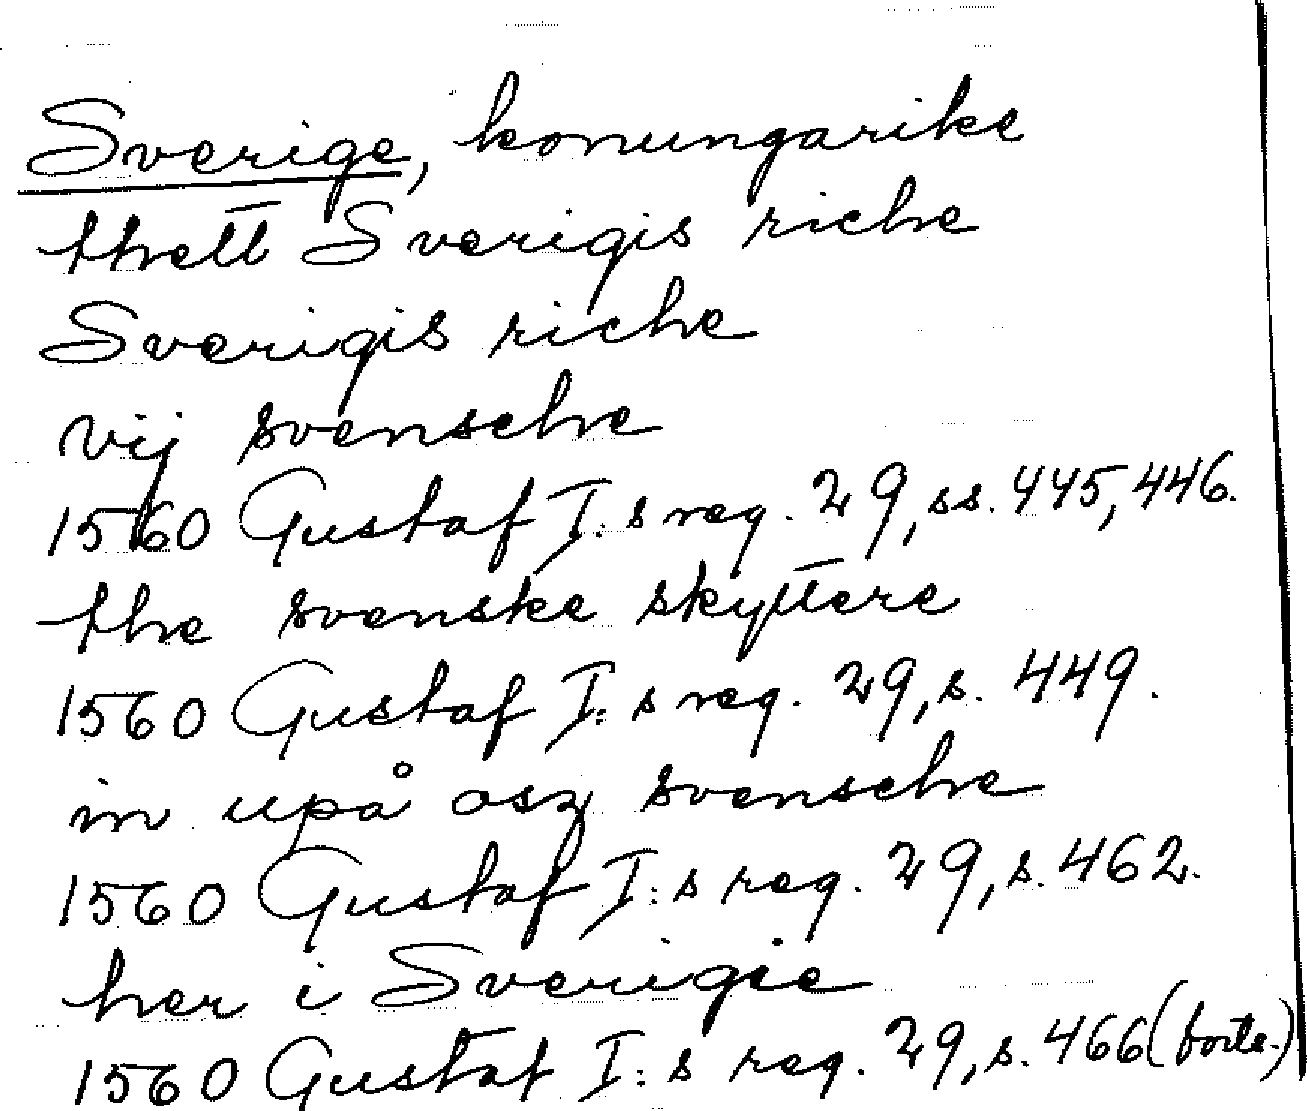 Sverige, konungarike
thett Sverigis riche
Sverigis riche
vij svensche
1560 Gustaf I:s reg. 29, ss. 445, 446.
the svenske skyttere
1560 Gustaf I:s reg. 29, s. 449.
in upå osz svensche
1560 Gustaf I:s reg. 29, s. 462.
her i Sverigie
1560 Gustaf I:s reg. 29, s. 466 (forts.)